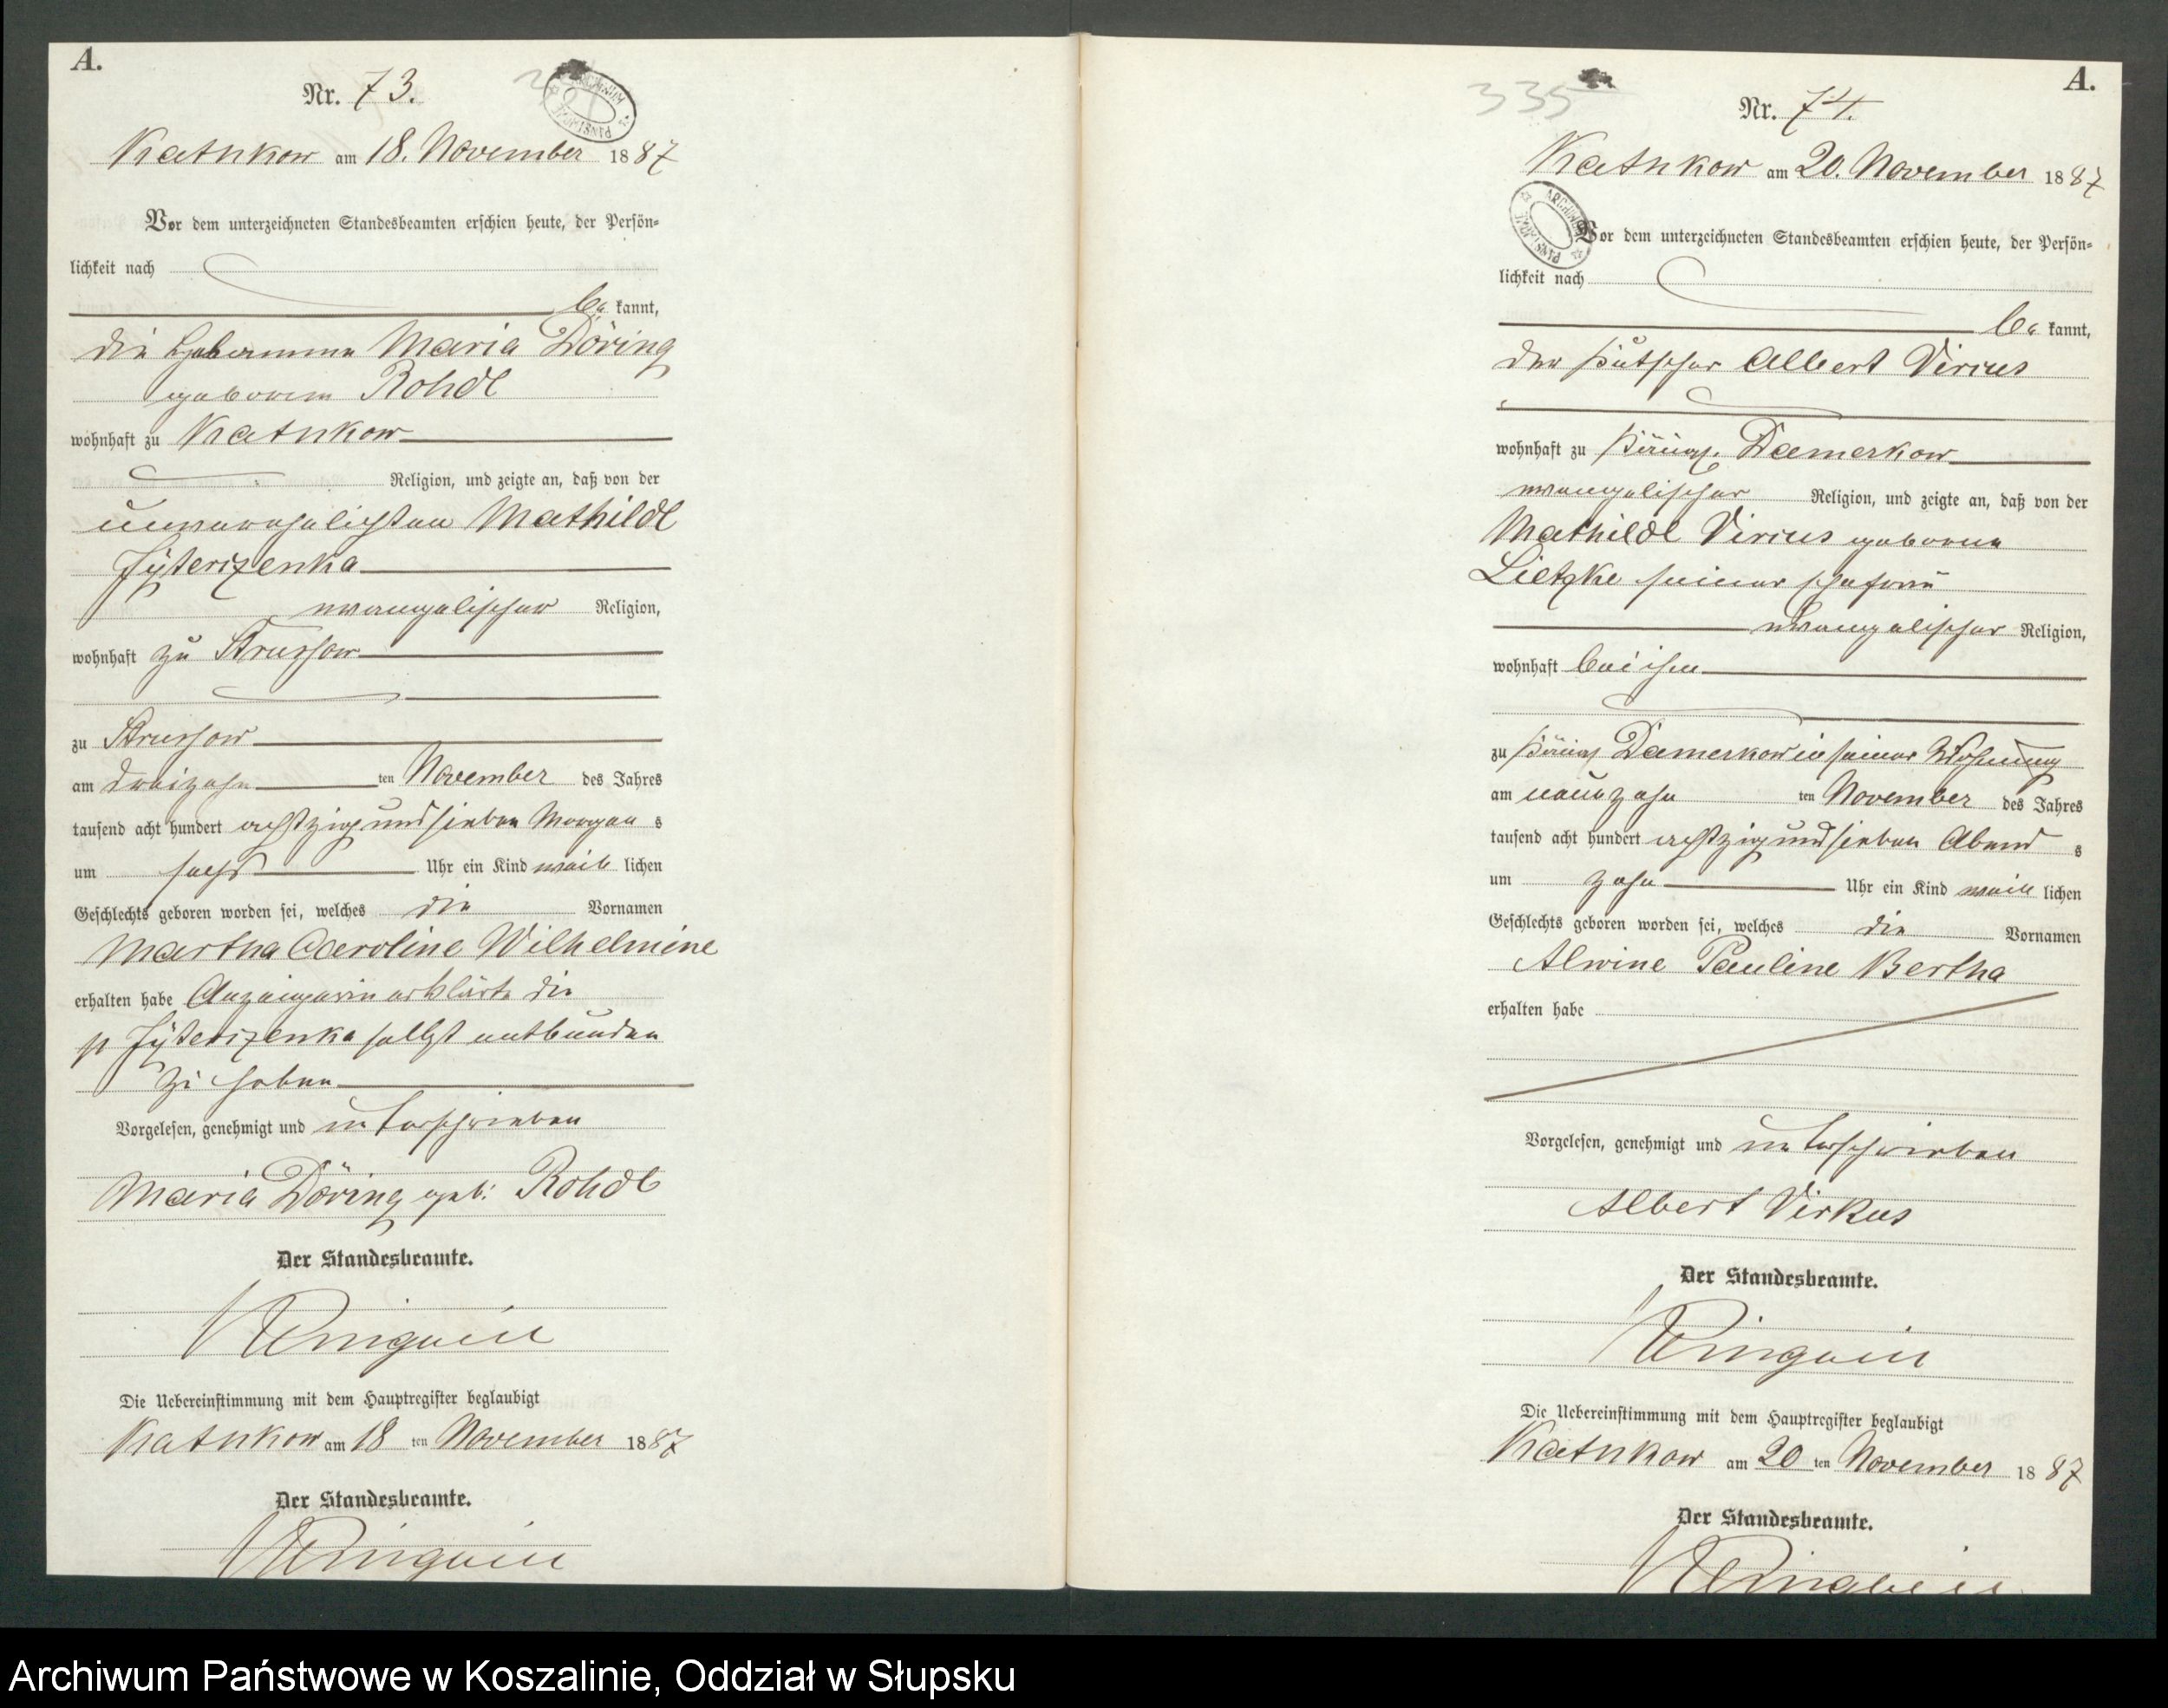 A.
Nr. 73.
Katkow am 18. November 1887
Vor dem unterzeichneten Standesbeamten erschien heute, der Persön=
lichkeit nach
be kannt,
die Hebamme Maria Döring
geborene Rohde
wohnhaft zu Katkow
Religion, und zeigte an, daß von der
unverehelichten Mathilde
evangelischer Religion,
wohnhaft zu Strussow
zu Strussow
am dreizehn ten November des Jahres
tausend acht hundert achtzig und sieben Morgen s
um sechs Uhr ein Kind weib lichen
Geschlechts geboren worden sei, welches die Vornamen
Martha Caroline Wilhelmine
erhalten habe Anzeigerin erklärte die
p selbst entbunden
zu haben
Vorgelesen, genehmigt und unterschrieben
Maria Döring geb. Rohde
Der Standesbeamte.
Die Uebereinstimmung mit dem Hauptregister beglaubigt
Katkow am 18 ten November 1887
Der Standesbeamte.
335
A.
Nr. 74.
Katkow am 20. November 1887
Vor dem unterzeichneten Standesbeamten erschien heute, der Persön=
lichkeit nach
be kannt,
der Albert Vircus
wohnhaft zu Damerkow
evangelischer Religion, und zeigte an, daß von der
Mathilde Vircus geborene
Lietzke seiner Ehefrau
evangelischer Religion,
wohnhaft bei ihm
zu Damerkow in seiner Wohnung
am neunzehn ten November des Jahres
tausend acht hundert achtzig und sieben Abend s
um zehn Uhr ein Kind weib lichen
Geschlechts geboren worden sei, welches die Vornamen
Alwine Pauline Bertha
erhalten habe
Vorgelesen, genehmigt und unterschrieben
Albert Virkus
Der Standesbeamte.
Die Uebereinstimmung mit dem Hauptregister beglaubigt
Katkow am 20 ten November 1887
Der Standesbeamte.
Archiwum Państwowe w Koszalinie, Oddział w Słupsku